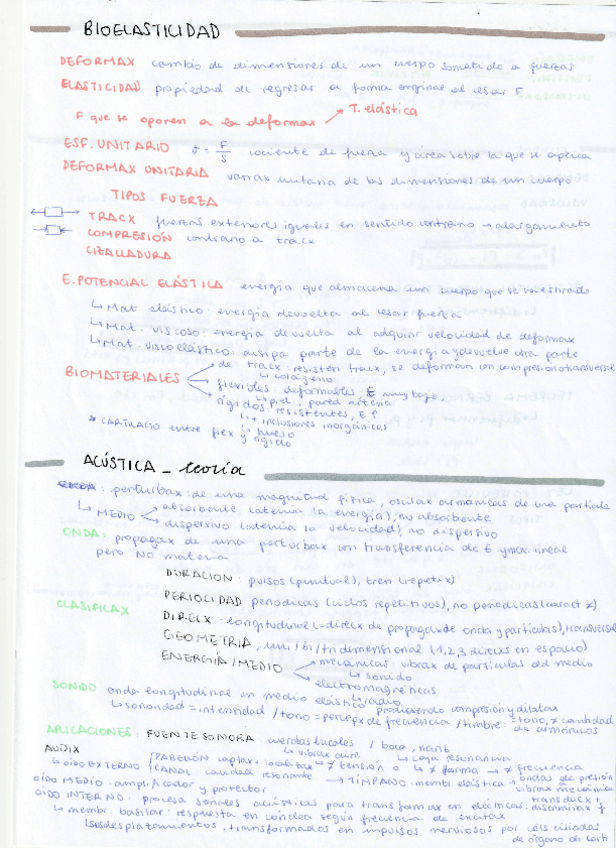 BIOELASTICIDAD
DEFORMAX cambio de dimensiones de un cuerpo sometido a fuerzas
ELASTICIDAD propiedad de regresar a forma original al cesar F
F que se oponen a la deformax → T. elástica
ESF. UNITARIO σ = F/S cociente de fuerza y área sobre la que se aplica
DEFORMAX UNITARIA variax unitaria de las dimensiones de un cuerpo
TIPOS FUERZA
TRACX fuerzas exteriores iguales en sentido contrario → alargamiento
COMPRESIÓN contrario a tracx
CIZALLADURA
E. POTENCIAL ELÁSTICA energía que almacena un cuerpo que se ha estirado
↳ Mat elástico: energía devuelta al cesar fuerza
↳ Mat. viscoso: energía devuelta al adquirir velocidad de deformax
↳ Mat. viscoelástico: disipa parte de la energía y devuelve otra parte
BIOMATERIALES
de tracx: resisten tracx, se deforman con compresión o transversal
↳ colágeno
flexibles: deformables E muy baja
↳ piel, pared arteria
rígidos: resistentes, E↑
↳ + inclusiones inorgánicas
↳ hueso
* CARTÍLAGO entre flex y rígido
ACÚSTICA _ teoría
: perturbax: de una magnitud física, oscilax armónicas de una partícula
↳ MEDIO
absorbente (atenúa la energía), no absorbente
dispersivo (atenúa la velocidad), no dispersivo
ONDA: propagax de una perturbax con transferencia de E y mov. lineal
pero NO materia
CLASIFICAX
DURACIÓN: pulsos (puntual), tren (repetix)
PERIOCIDAD periódicas (ciclos repetitivos), no periódicas (caract ≠)
DIRECX: longitudinal (=direcx de propagax de onda y partículas), transversal
GEOMETRÍA, uni/bi/tridimensional (1,2,3 direcxs en espacio)
ENERGÍA/MEDIO
mecánicas: vibrax de partículas del medio
↳ sonido
electromagnéticas
↳ radio
SONIDO onda longitudinal en medio elástico produciendo compresión y dilatax
↳ sonoridad = intensidad / tono = percepx de frecuencia / timbre: = tono, ≠ cantidad de armónicos
APLICACIONES: FUENTE SONORA cuerdas bucales / boca, nariz
↳ vibrax aire ↳ caja resonancia
↳ ≠ tensión o ≠ forma → ≠ frecuencia
AUDIX
↳ OÍDO EXTERNO { PABELLÓN captax, localizax
CANAL cavidad resonante → TÍMPANO: membr elástica + ondas de presión
vibrax mecánica
OÍDO MEDIO: amplificador y protector
OÍDO INTERNO: procesa señales acústicas para transformax en eléctricas: transducx, discriminax f
↳ membr basilar: respuesta en cóclea según frecuencia de excitax
↳ desplazamientos, transformados en impulsos nerviosos por céls ciliadas
de órgano de Corti